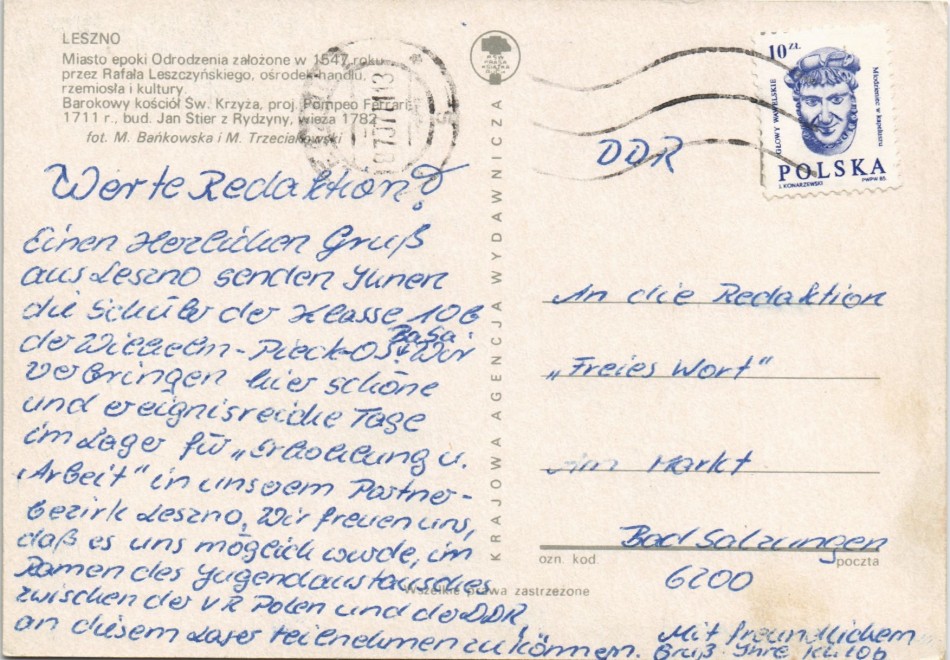 LESZNO
Miasto epoki Odrodzenia założone w 1547 roku
przez Rafała Leszczyńskiego, ośrodek handlu,
rzemiosła i kultury.
Barokowy kościół Św. Krzyża, proj. Pompeo Ferrari
1711 r., bud. Jan Stier z Rydzyny, wieża 1782
fot. M. Bańkowska i M. Trzeciakowski
Werte Redaktion!
Einen Herzlichen Gruß
aus Leszno senden Ihnen
die Schüler der Klasse 10b
der Wilhelm-Pieck-OS BaSa. Wir
verbringen hier schöne
und ereignisreiche Tage
im Lager für „Erholung u.
Arbeit" in unserem Partner-
bezirk Leszno, Wir freuen uns,
daß es uns möglich wurde, im
Ramen des Jugendaustausches
zwischen der VR Polen und der DDR
an diesem Lager teilnehmen zu können.
Mit freundlichem
Gruß Ihre Kl. 10b
KRAJOWA AGENCJA WYDAWNICZA
Wszelkie prawa zastrzeżone
10 ZŁ
GŁOWY WAWELSKIE
Młodzieniec w kapeluszu
POLSKA
J. KONARZEWSKI
PWPW 85
DDR
An die Redaktion
„Freies Wort"
Am Markt
Bad Salzungen
ozn. kod.
poczta
6200